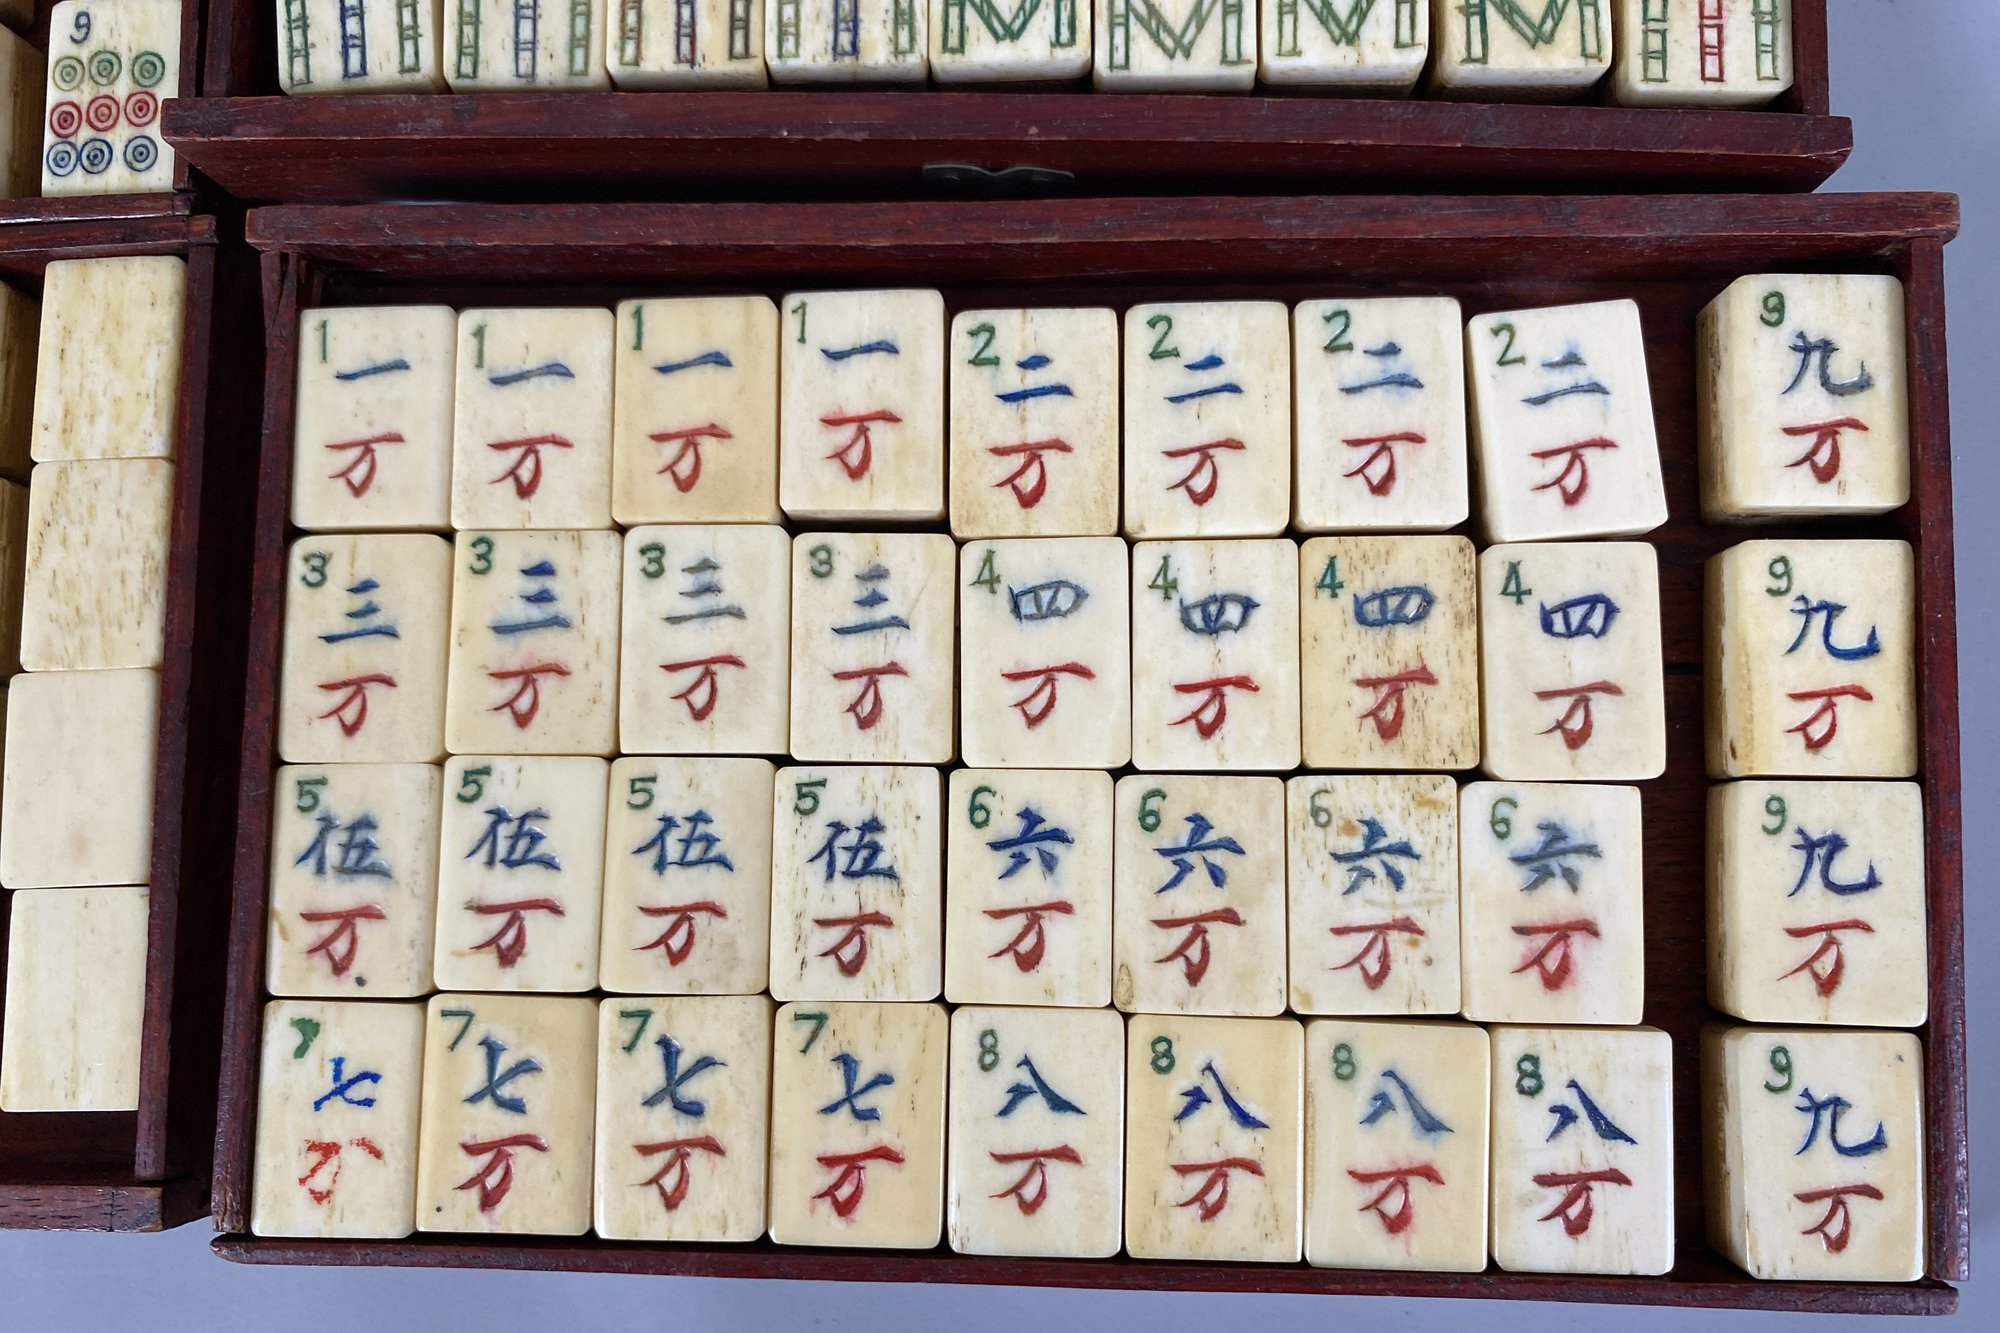 9
1 1 1 1 2 2 2 2 9
一 一 一 一 二 二 二 二 九
万 万 万 万 万 万 万 万 万
3 3 3 3 4 4 4 4 9
三 三 三 三 四 四 四 四 九
万 万 万 万 万 万 万 万 万
5 5 5 5 6 6 6 6 9
伍 伍 伍 伍 六 六 六 六 九
万 万 万 万 万 万 万 万 万
7 7 7 7 8 8 8 8 9
七 七 七 七 八 八 八 八 九
万 万 万 万 万 万 万 万 万